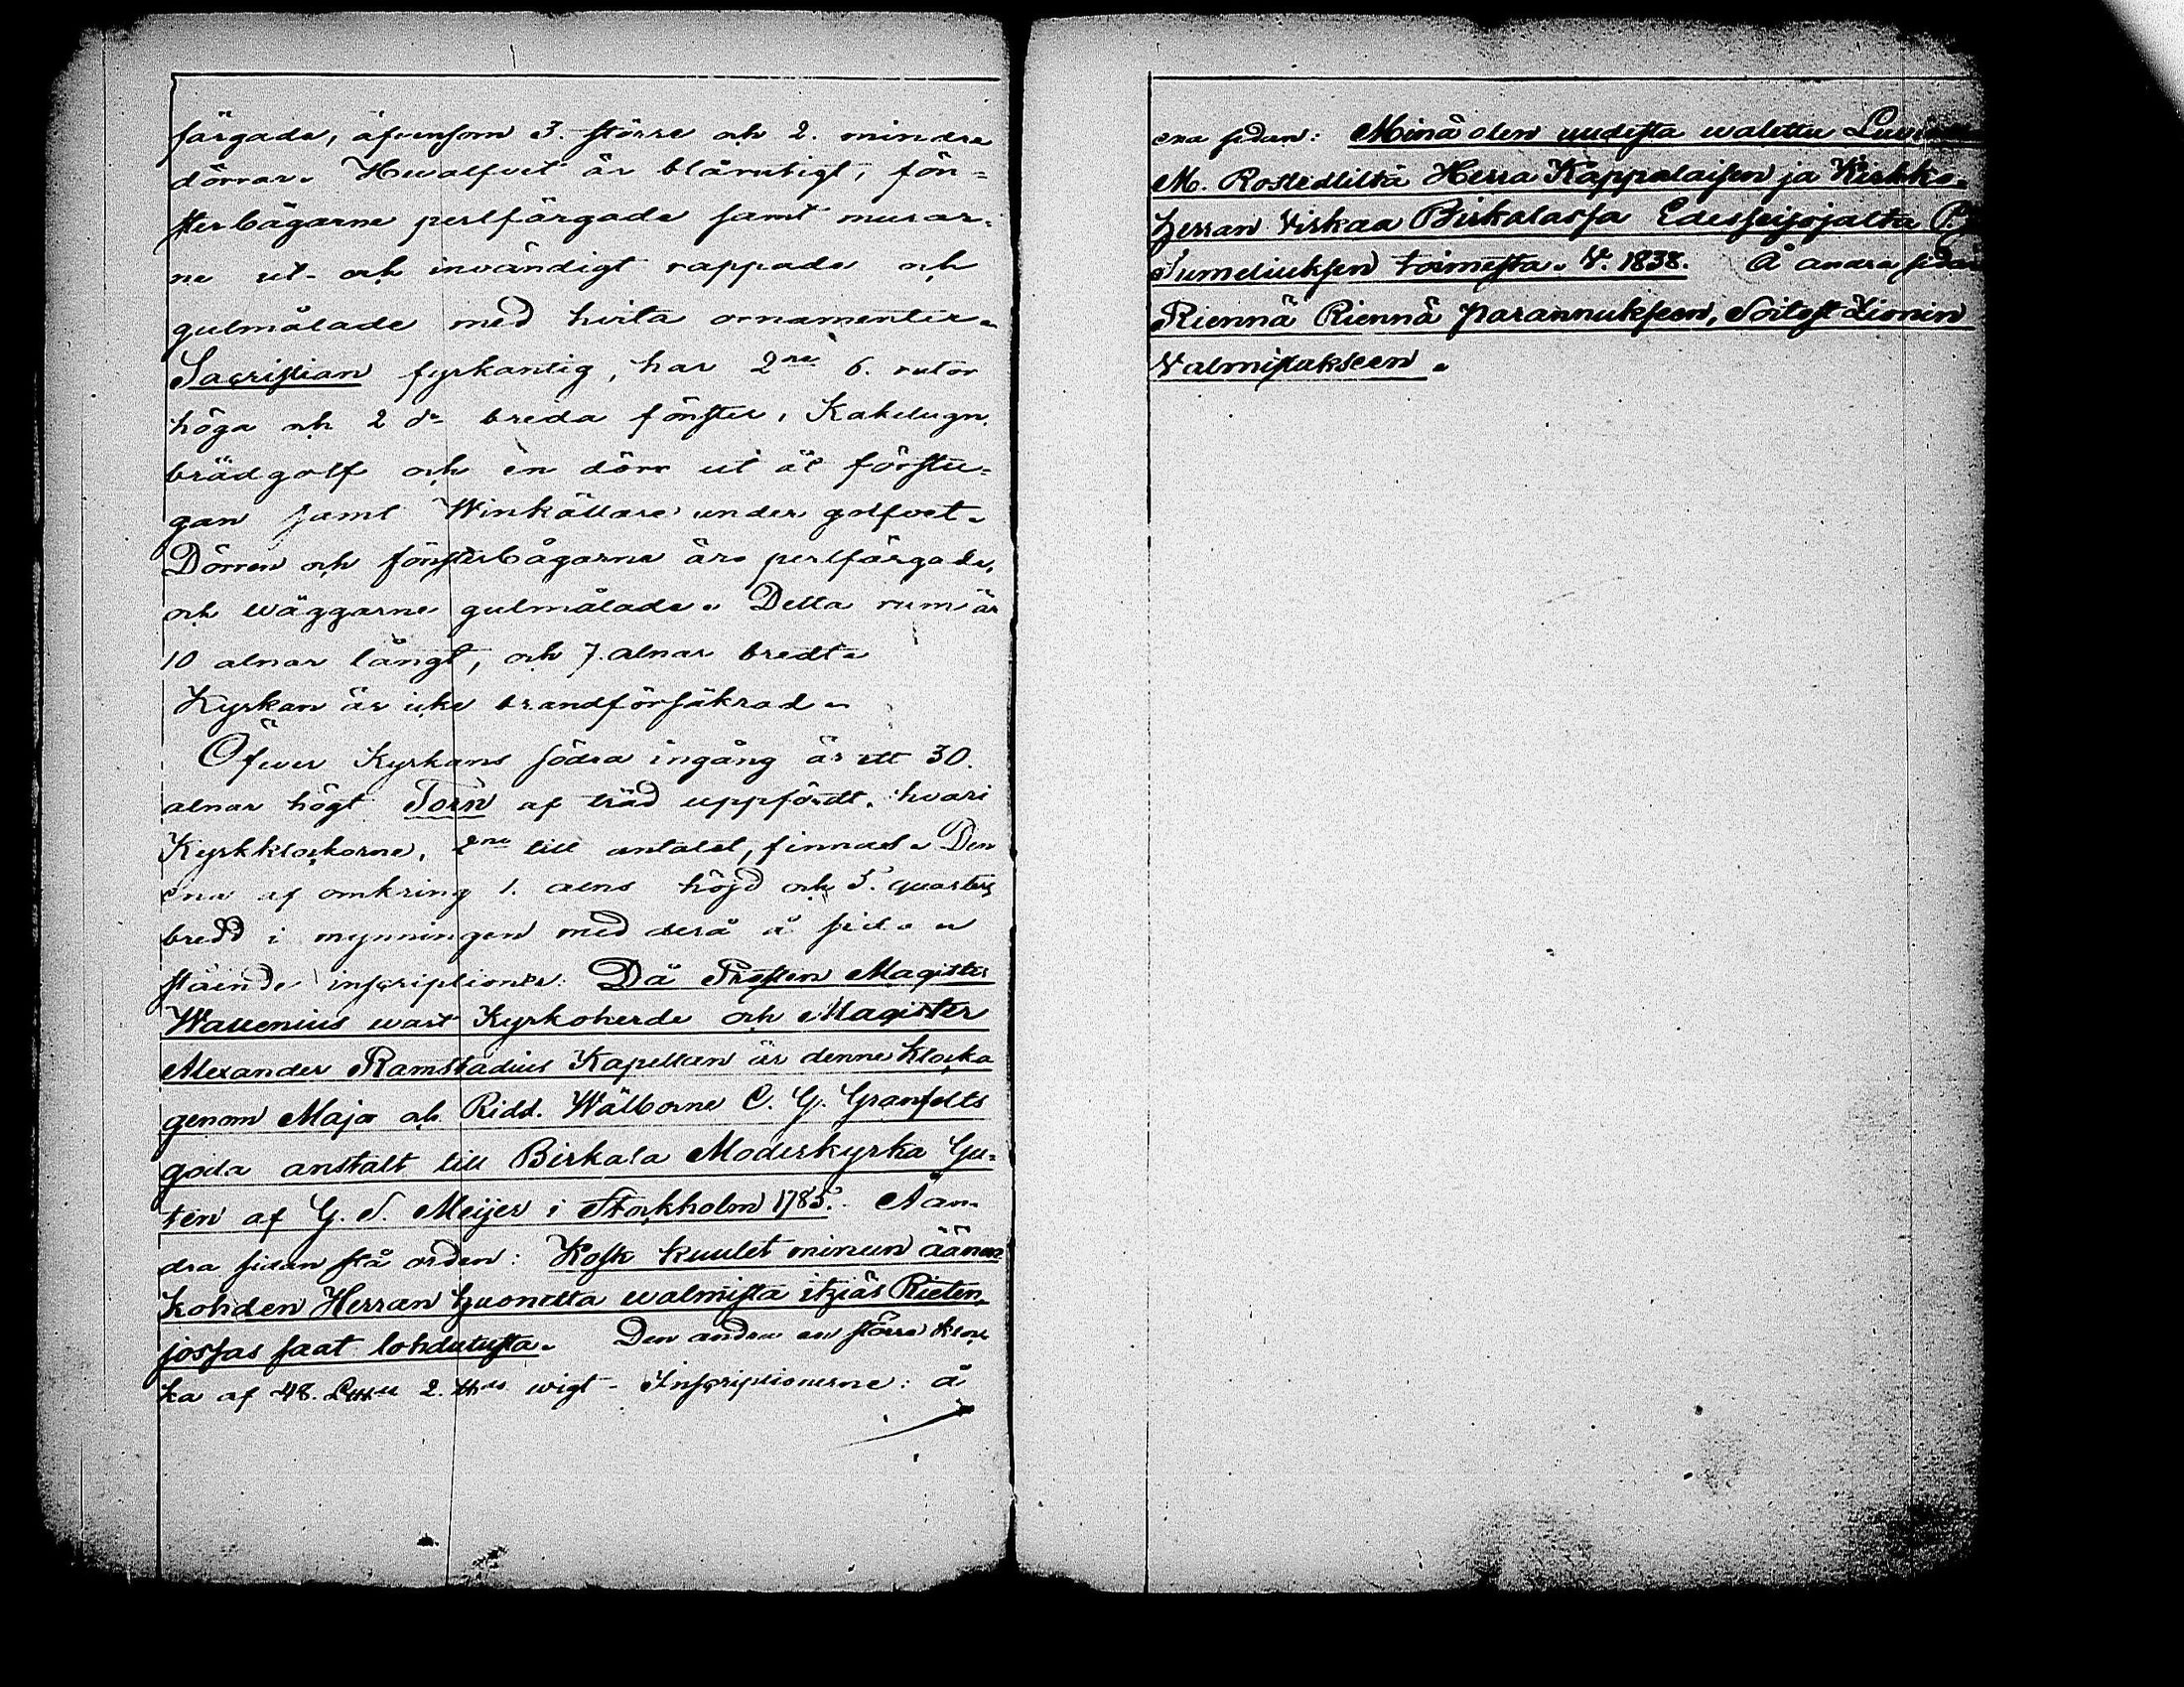 färgade, äfvensom 3. större och 2. mindre
dörrar. Hwalfvet är blåmutigt, fön=
sterbågarne perlfärgade samt murar=
ne ut- och invändigt rappade och
gulmålade med hvita ornamenter.
Sacristian fyrkantig, har 2ne 6. rutor
höga och 2 do breda fönster, Kakelugn,
brädgolf och en dörr ut åt förstu=
gan samt Winkällare under golfvet.
Dörren och fönsterbågarne äro perlfärgade,
och wäggarne gulmålade. Detta rum är
10 alnar långt, och 7. alnar bredt.
Kyrkan är icke brandförsäkrad.
Öfwer Kyrkans södra ingång är ett 30.
alnar högt Torn af träd uppfördt, hvari
Kyrkklockorne, 2ne till antalet, finnas. Den
ena af omkring 1. alns höjd och 5. quarters
bredd i mynningen med derå å sidan
stående inscriptioner: Då Prosten Magister
Wallenius wart Kyrkoherde och Magister
Alexander Ramstadius Kapellan är denne klocka
genom Major och Ridd. Wälborne C. G. Granfelts
goda anstalt till Birkala Moderkyrka Gu=
ten af G. S. Meijer i Stockholm 1785. Å an=
dra sidan stå orden: Kosk kuulet minun äänen
kohden Herran huonetta walmista itziäs Rieten,
jossas saat lohdutusta. Den andra en större kloc
ka af 48. L℔ 2. ℔s wigt. Inscriptionerne: å
ena sidan: Minä olen uudesta walettu
M. Rostedtiltä Herra Kappalaisen ja Kirkko.
herran Virkaa Birkalassa Edesseisojalta
Sumeliuksen toimesta. V. 1838. Å andra sidan
Riennä Riennä parannukseen, Soitost Zionin
Valmistukseen.